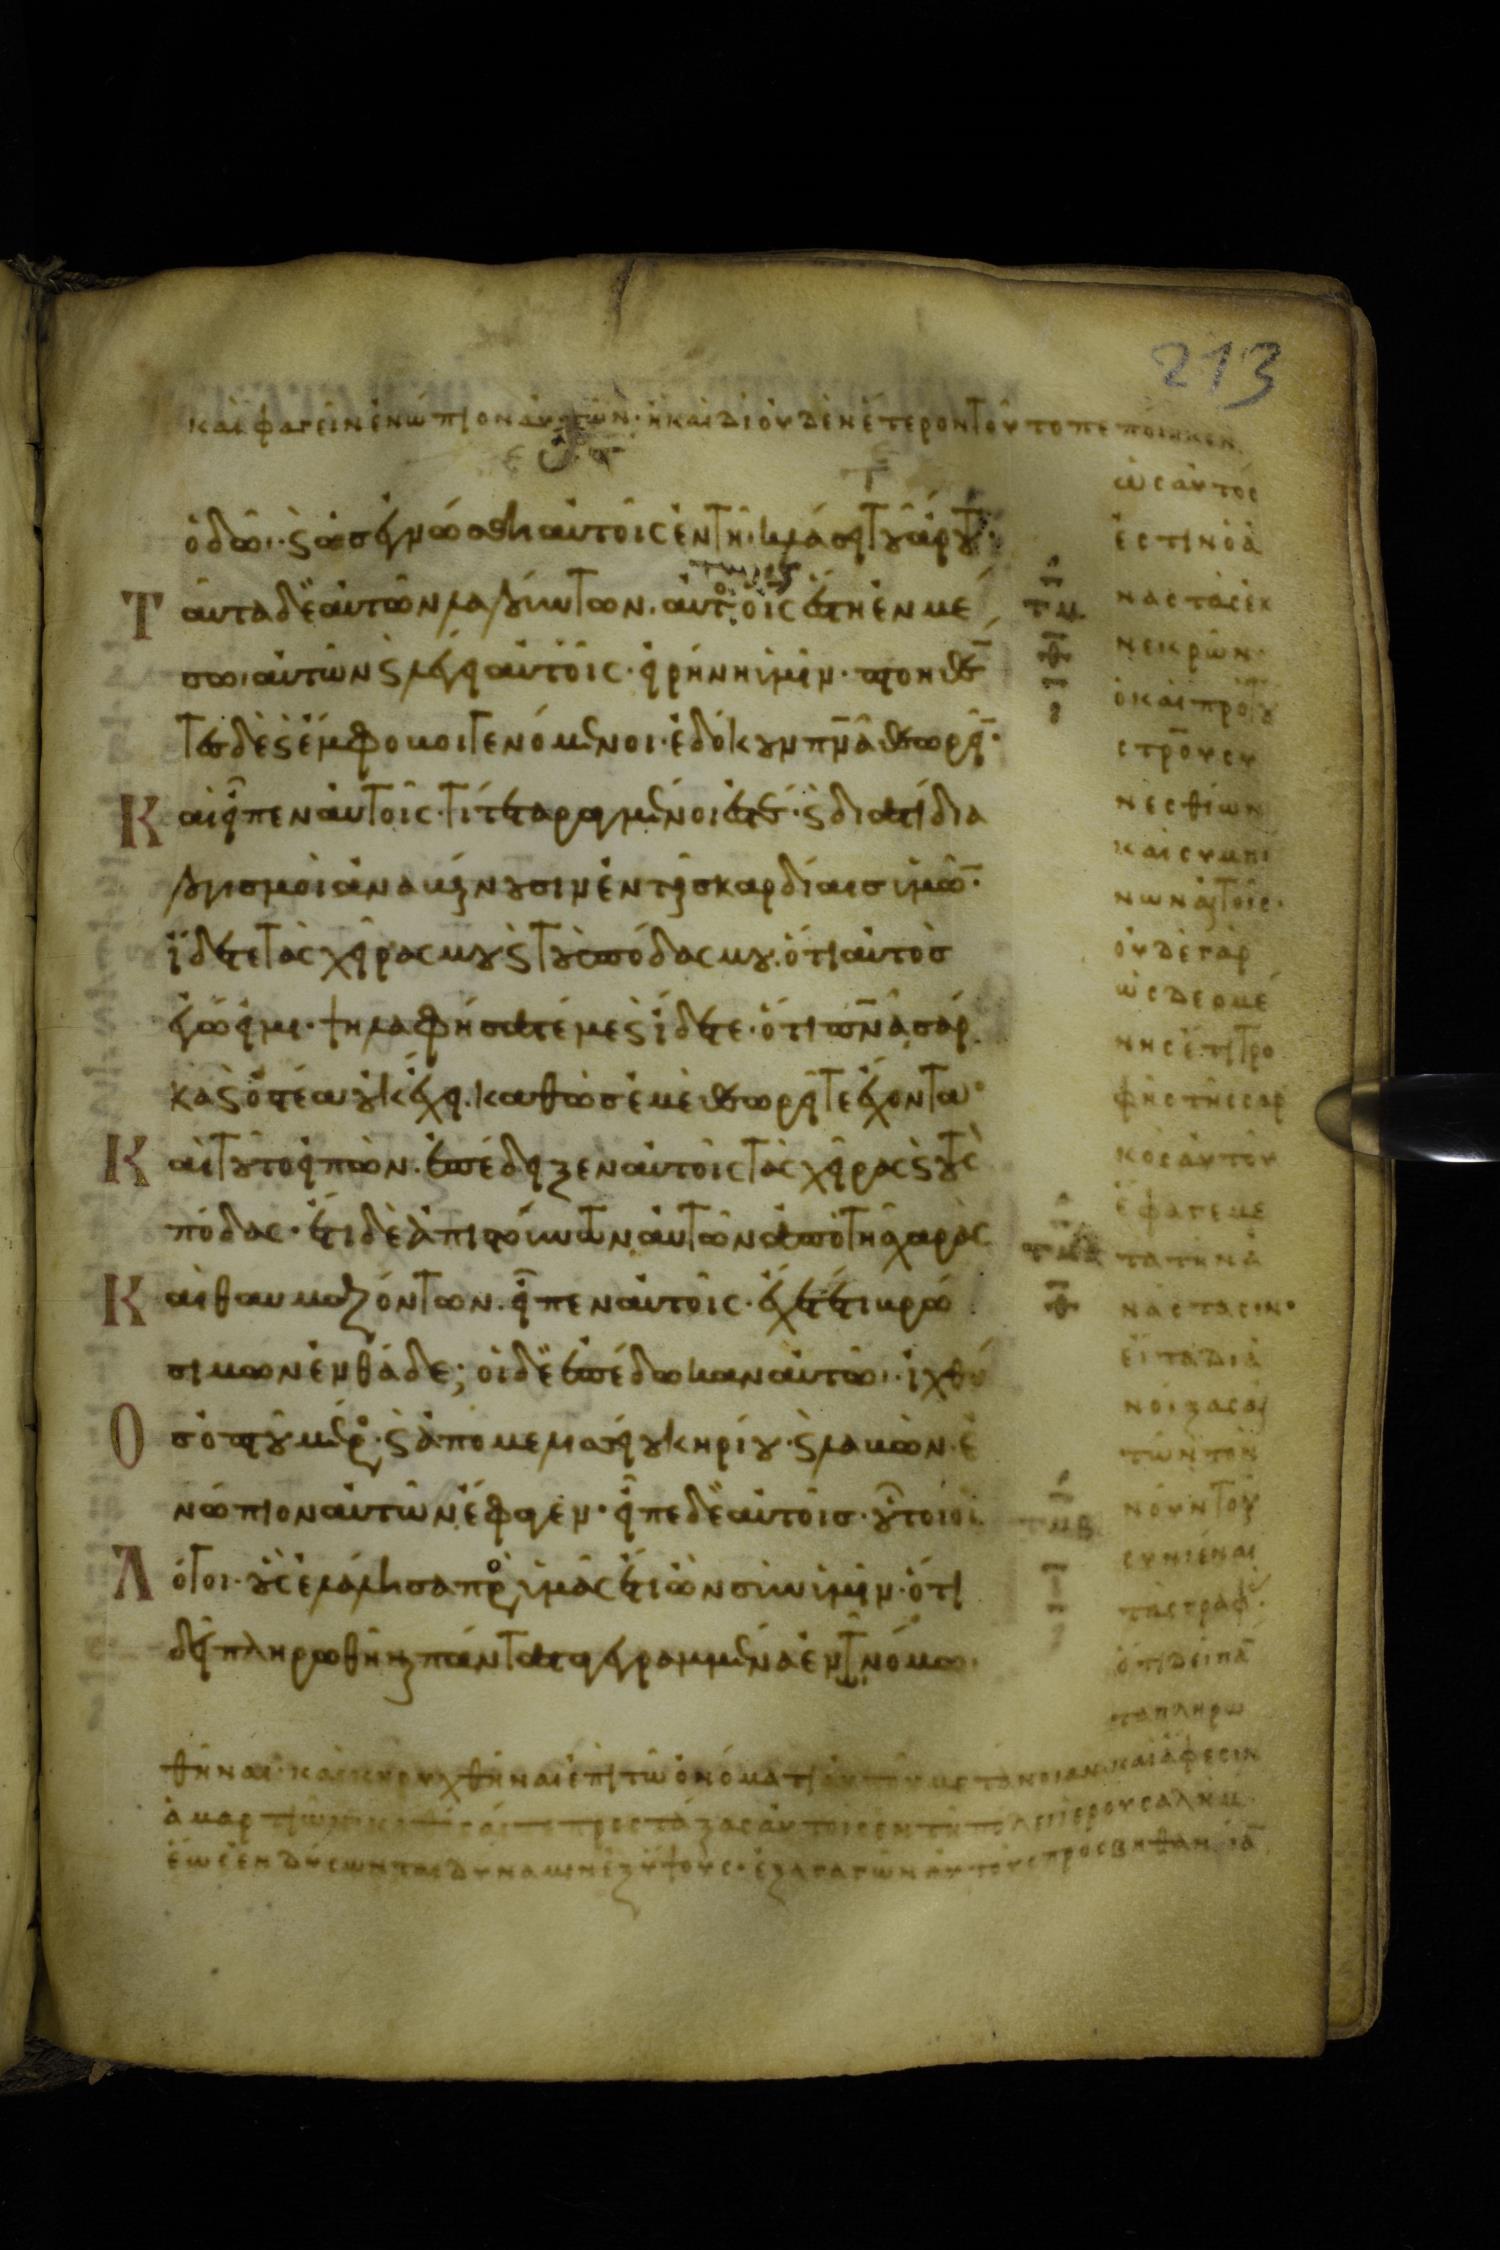 213
καὶ φαγεῖν ἐνώπιον αὐτῶν· ἢ καὶ δι οὐδὲν ἕτερον τοῦτο πεποίηκεν
ὁδῶ· ϗ ὡς ἐγνώσθη αὐτοῖς ἐν τῆ κλάσει τοῦ ἄρτου·
Ταῦτα δὲ αὐτῶν λαλούντων. αὐτὸς ὁ ις ἔστη ἐν μέ
σω αὐτῶν ϗ λέγει αὐτοῖς· εἰρήνη ὑμῖν· πτοηθέν
τες δὲ ϗ ἔμφοβοι γενόμενοι· ἐδόκουν πνα θεωρεῖν·
Καὶ εἶπεν αὐτοῖς· τί τεταραγμένοι ἐστέ· ϗ διατί δια
λογισμοὶ ἀναβαίνουσιν ἐν ταῖς καρδίαις ὑμῶν·
ἴδετε τὰς χεῖρας μου ϗ τοὺς πόδας μου. ὅτι αὐτὸς
ἐγώ εἰμι· ψηλαφήσατέ με ϗ ἴδετε· ὅτι πνα σάρ
κα ϗ ὀστέα οὐκ ἔχει. καθὼς ἐμὲ θεωρεῖτε ἔχοντα·
Καὶ τοῦτο εἰπὼν. ἐπέδειξεν αὐτοῖς τὰς χεῖρας ϗ τοὺς
πόδας· ἔτι δὲ ἀπιστούντων αὐτῶν ἀπὸ τῆς χαρᾶς
Καὶ θαυμαζόντων. εἶπεν αὐτοῖς· ἔχετέ τι βρώ
σιμον ἐνθάδε; οἱ δὲ ἐπέδωκαν αὐτῶ· ἰχθύ
Οσ ὀπτοῦ μέρος· ϗ ἀπὸ μελισσείου κηρίου· ϗ λαβὼν ἐ
νώπιον αὐτῶν ἔφαγεν· εἶπε δὲ αὐτοῖς· οὗτοι οἱ
Λόγοι· οὓς ἐλάλησα πρὸς ὑμᾶς ἔτι ὢν σὺν ὑμῖν· ὅτι
δεῖ πληρωθῆναι πάντα τὰ γεγραμμένα ἐν τῶ νόμω·
τμ
τμα
τμβ
ὡς αὐτός
ἐστιν ὁ ἀ
ναστὰς ἐκ
νεκρῶν·
ὁ καὶ πρὸ τοῦ
στρου συ
νεσθίων
καὶ συμπί
νων αὐτοῖς·
οὐδὲ γὰρ
ὡς δεομέ
νης ἔτι τρο
φῆς τῆς σαρ
κὸς αὐτοῦ
ἔφαγε με
τὰ τὴν ἀ
νάστασιν·
εἶτα διὰ
νοίξας αὐ
τῶν τὸν
νοῦν τοῦ
συνιέναι
τὰς γραφάς·
ὅτι δεῖ πάν
τα πληρω
θῆναι· καὶ κηρυχθῆναι ἐπὶ τῶ ὀνόματι αὐτοῦ μετάνοιαν καὶ ἄφεσιν
ἁμαρτιῶν· προστάξας αὐτοῖς ἐν τῆ πόλει ἱερουσαλήμ
ἕως ἐνδύσωνται δύναμιν ἐξ ὕψους· ἐξαγαγὼν αὐτοὺς πρὸς βηθανίαν